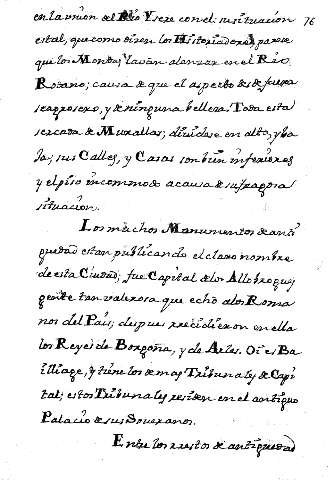 en la union del Rio Ysere con el: su situacion 76
estal, que como dicen los Historiadores, parece
que los Montes, llevan alanzar en el Rio
Rodano; causa de que el aspecto desde fuera
sea grosero, y de ninguna belleza. Toda esta
sercada de Murallas; dividese en alto, y ba
la; sus Calles, y Casas son bien inferiores
y el piso incommodo a causa de su fragosa
situacion.
Los muchos Monumentos de anti
guedad estan publicando el claro nombre
de esta Ciudad; fue Capital de los Allobroges
gente tan valerosa que echó a los Roma
nos del Pais; despues residieron en ella
los Reyes de Borgoña, y de Arles. Oi es Ba
illiage, y tiene los demas Tribunales de Capi
tal; estos Tribunales residen en el antiguo
Palacio de sus Soveranos.
Entre los restos de antiguedad